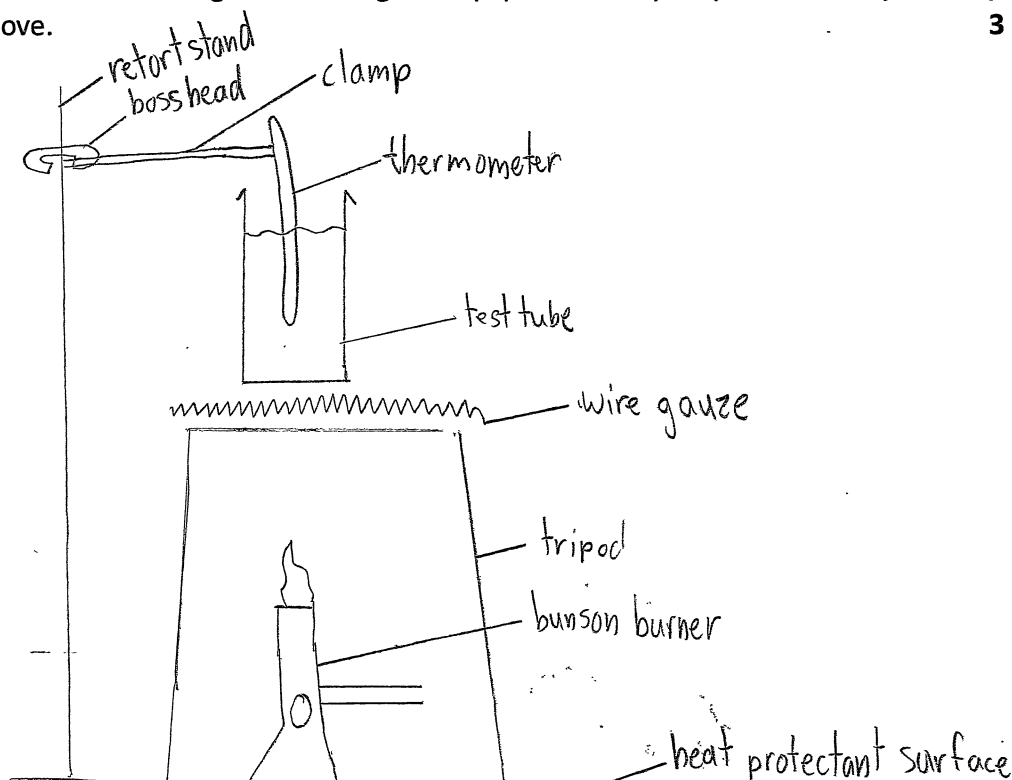 ove. 3
retort stand
bosshead
clamp
thermometer
test tube
wire gauze
tripod
bunson burner
heat protectant surface